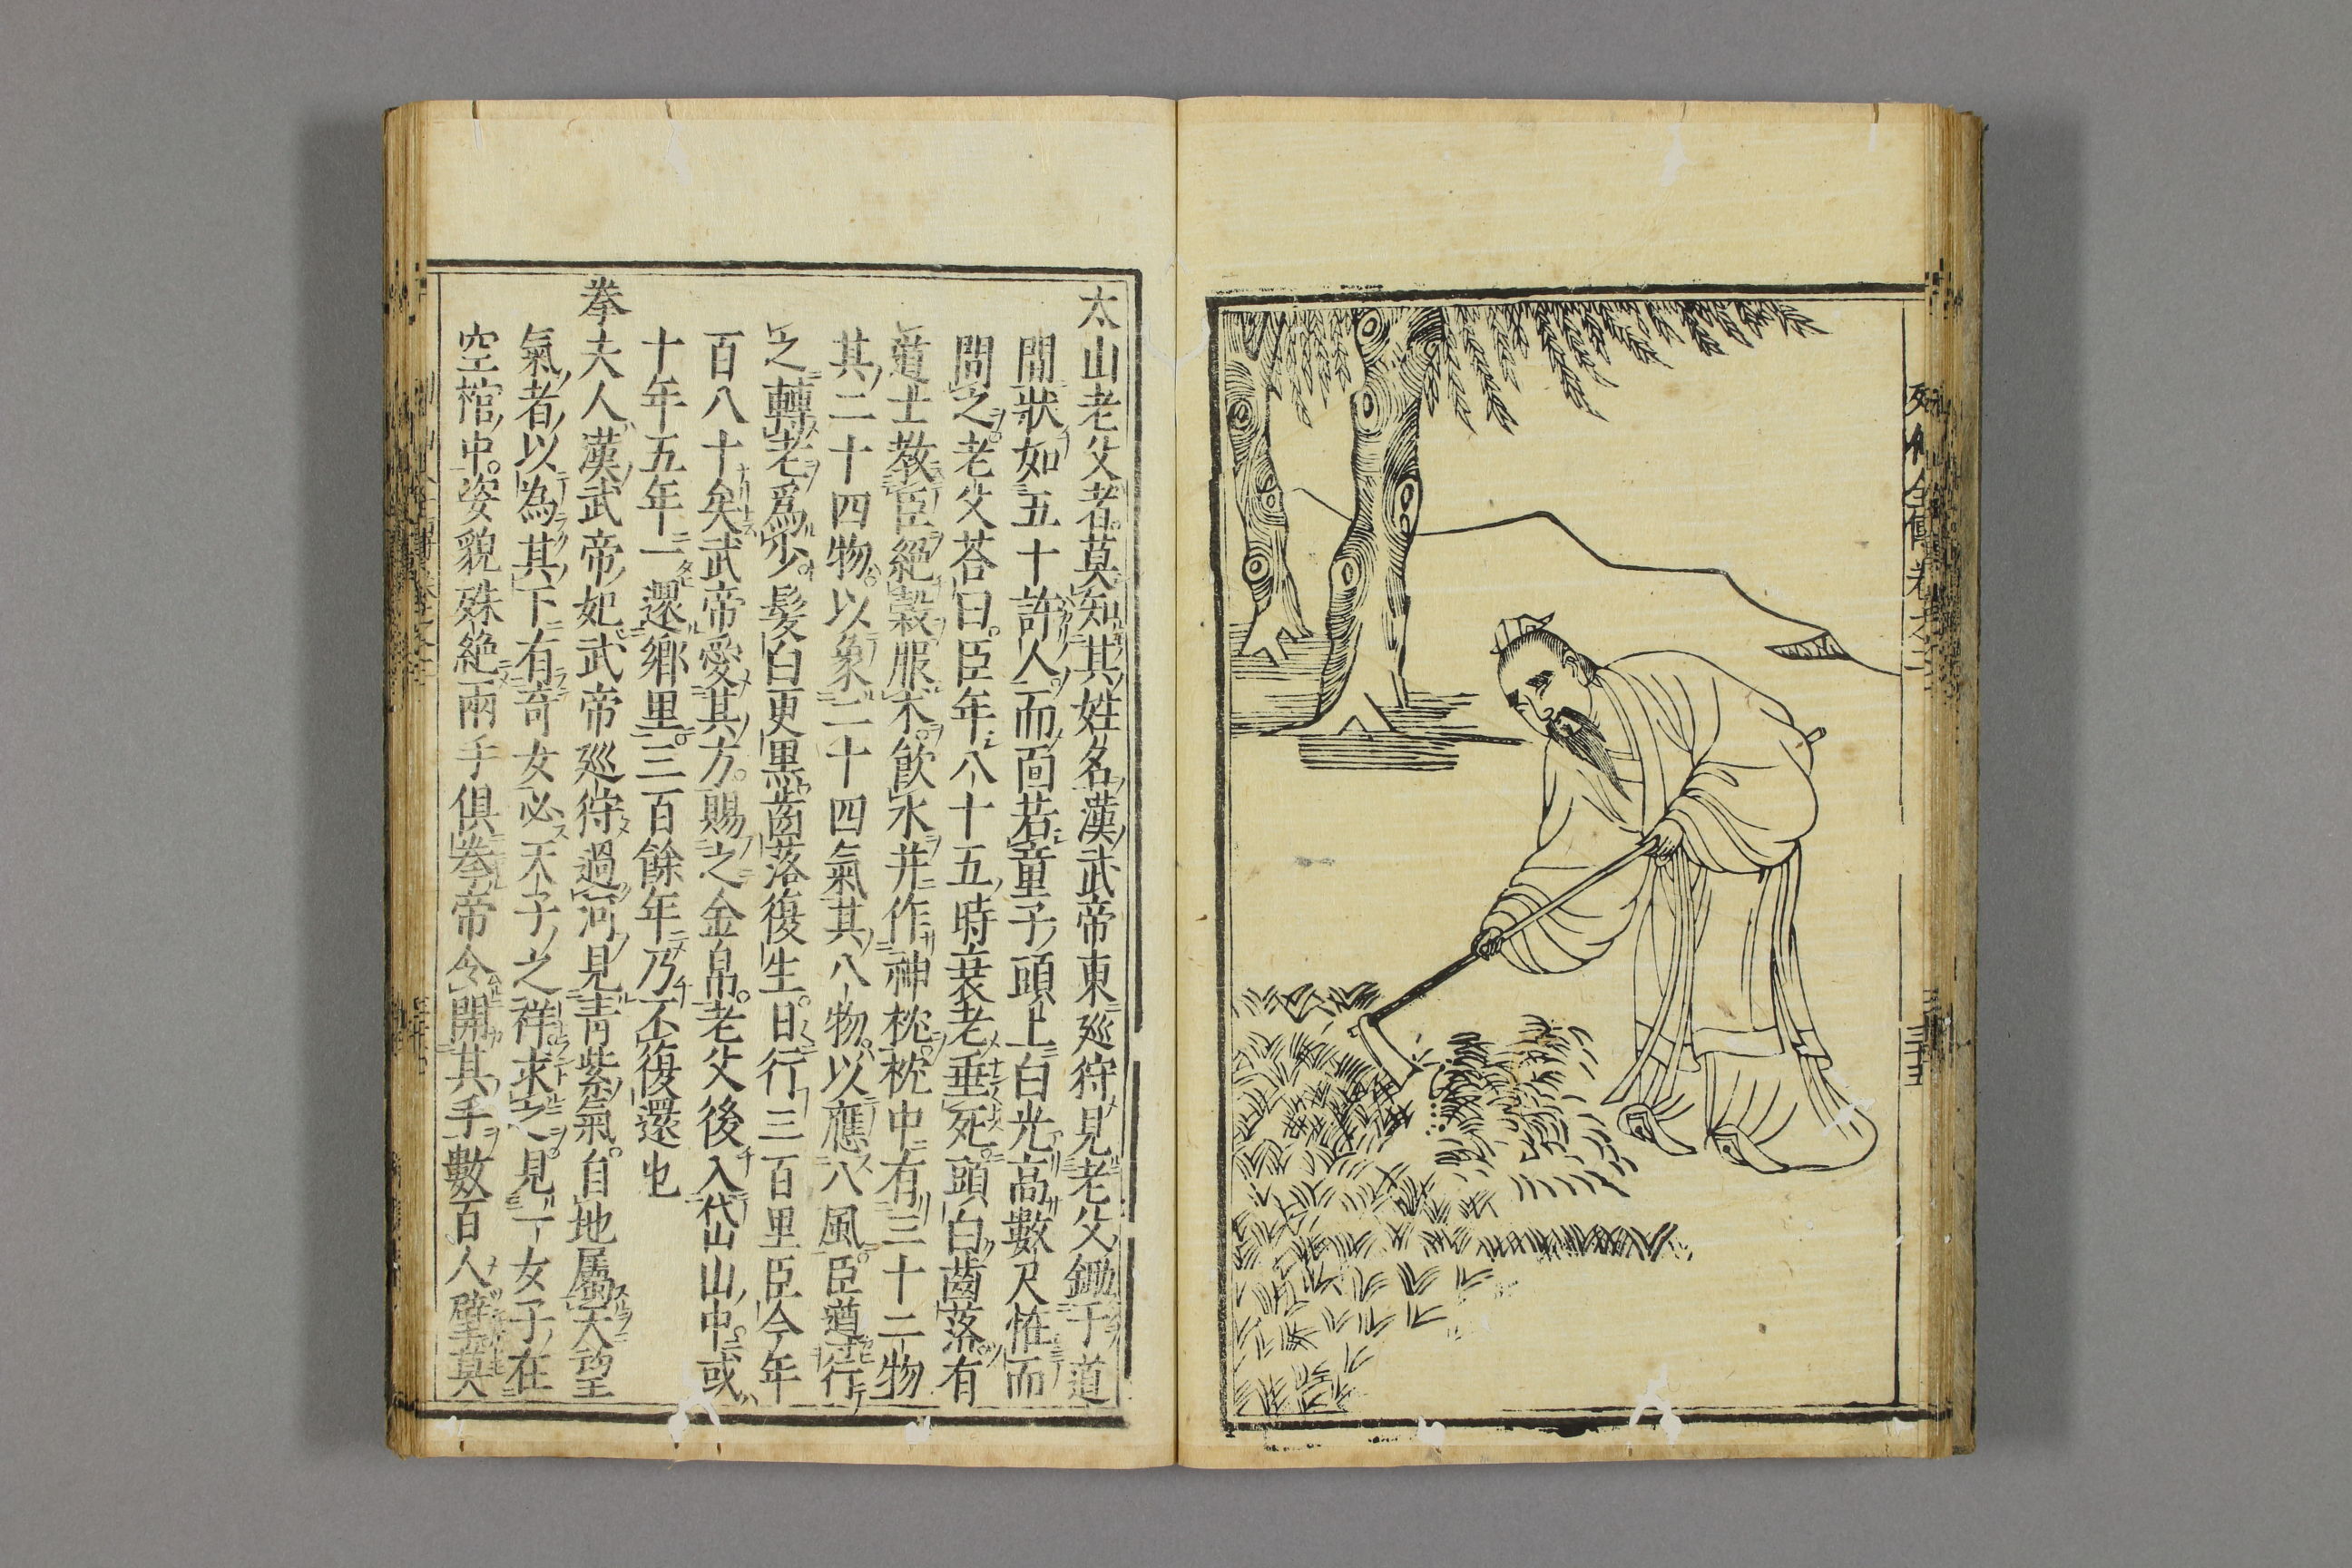 列仙全傳卷之二
三十五
太山老父者莫知其姓名漢武帝東巡狩見老父鋤于道
間狀如五十許人而面若童子頭上白光高數尺恠而
問之老父荅曰臣年八十五時衰老垂死頭白齒落有
道士教臣絶穀服术飲水并作神枕枕中有三十二物
其二十四物以象二十四氣其八物以應八風臣遵行
之轉老爲少髮白更黒齒落復生日行三百里臣今年
百八十矣武帝愛其方賜之金帛老父後入岱山中或
十年五年一還鄉里三百餘年乃不復還也
拳夫人漢武帝妃武帝廵狩過河見青紫氣自地屬天望
氣者以為其下有奇女必天子之祥求之見一女子在
空棺中姿貌殊絶兩手俱拳帝令開其手數百人擘莫